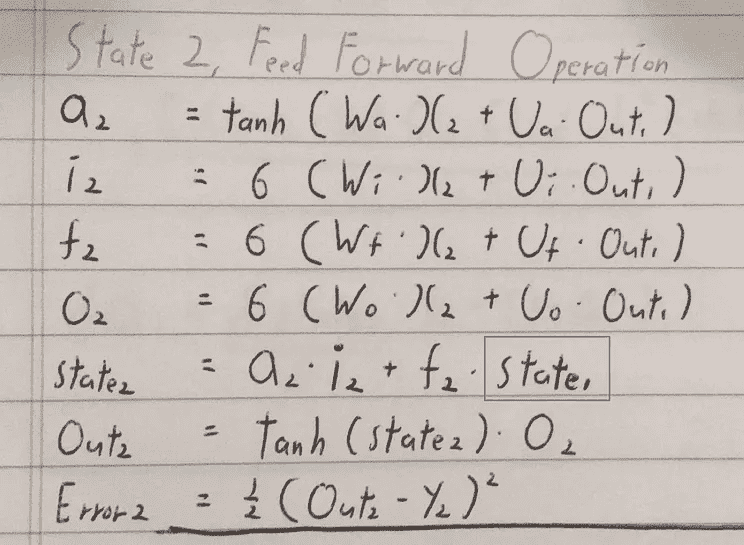 State 2, Feed Forward Operation
a₂ = tanh ( Wa · x₂ + Ua · Out₁ )
i₂ = σ ( Wi · x₂ + Ui · Out₁ )
f₂ = σ ( Wf · x₂ + Uf · Out₁ )
O₂ = σ ( Wo · x₂ + Uo · Out₁ )
state₂ = a₂ · i₂ + f₂ · state₁
Out₂ = tanh (state₂) · O₂
Error₂ = ½ ( Out₂ - Y₂ )²